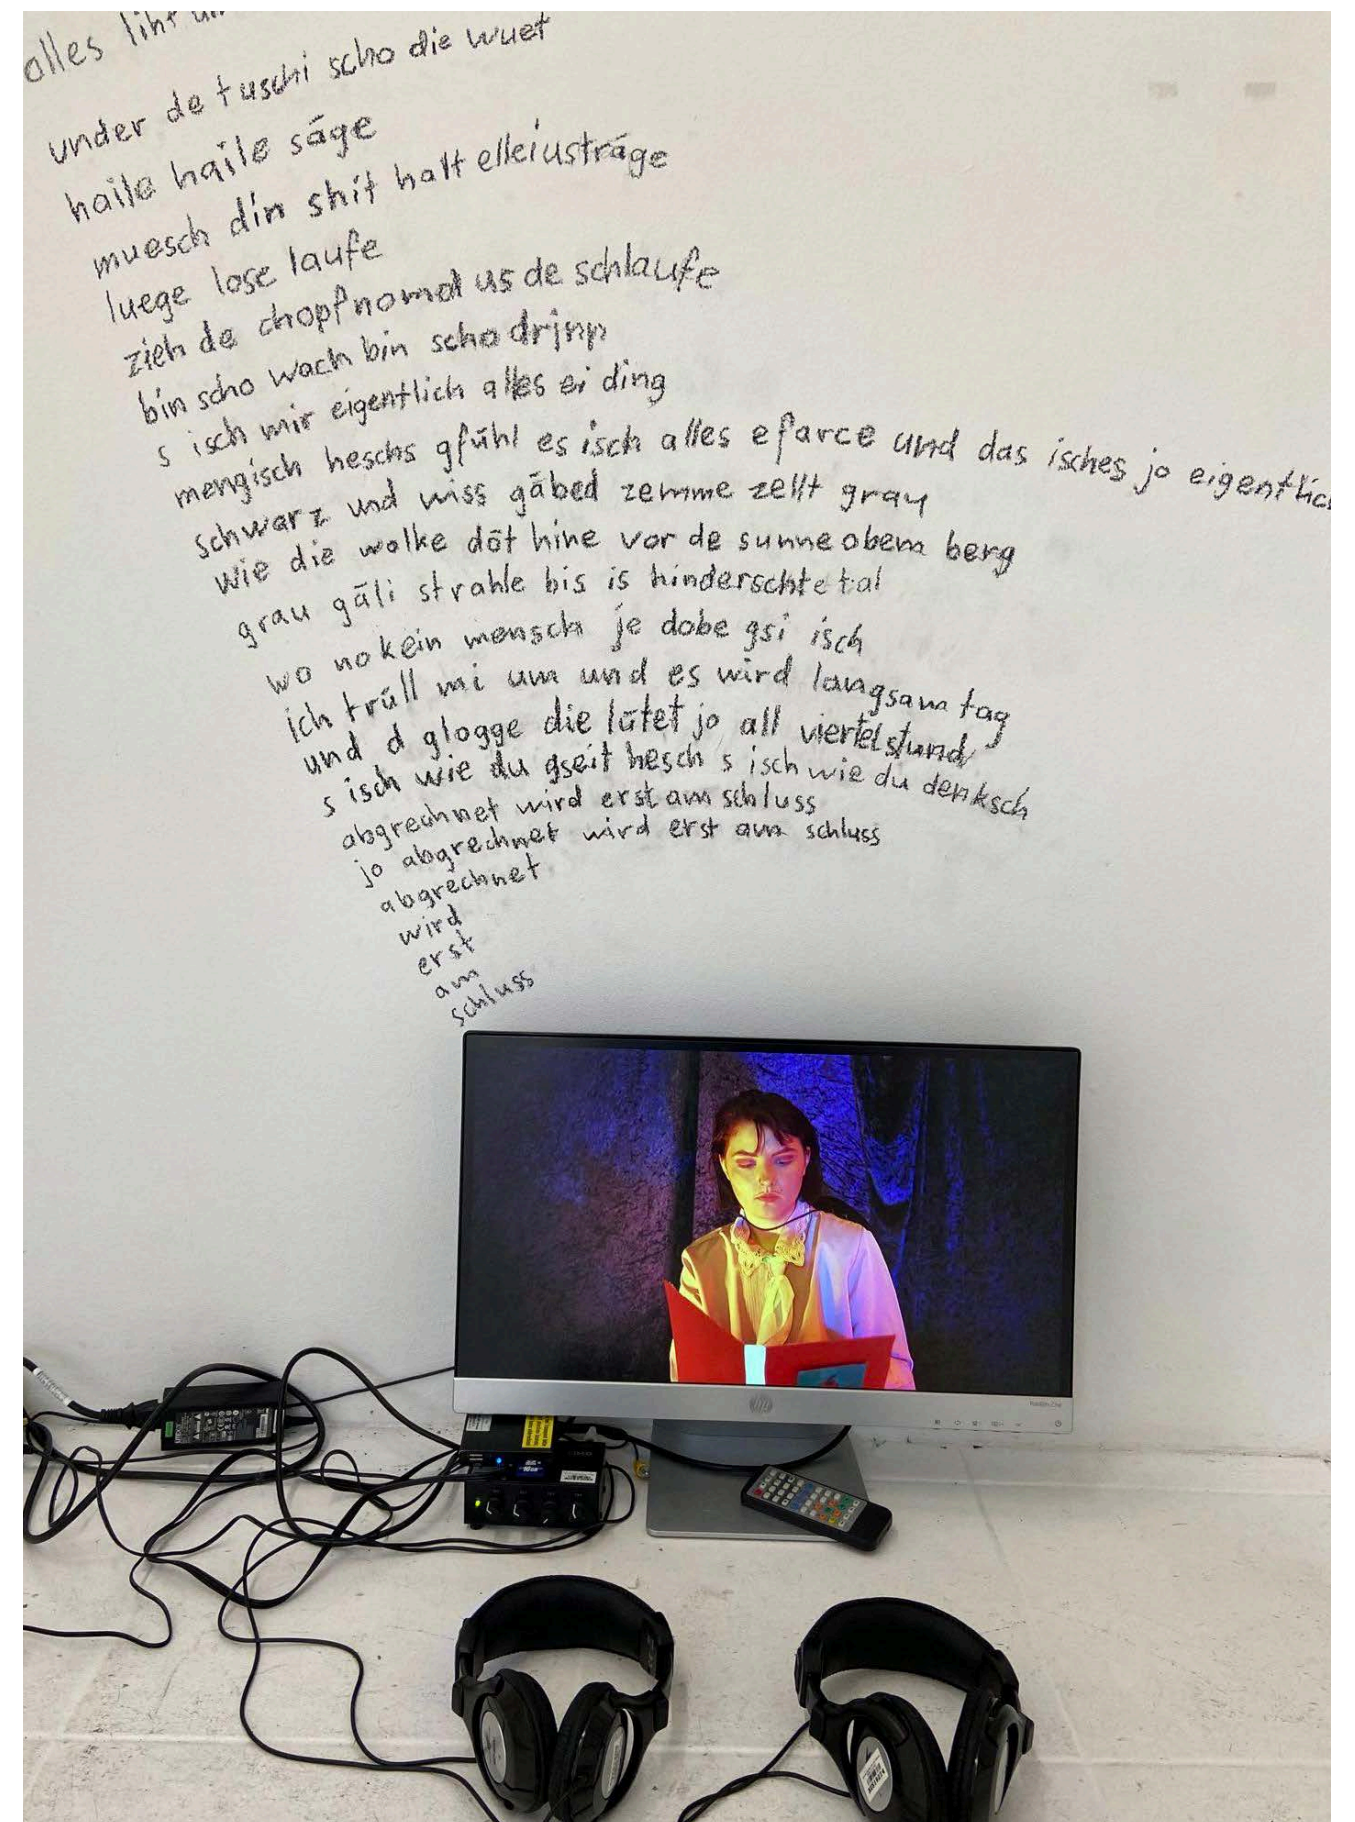 alles liht
under de tuschi scho die wuet
haile haile säge
muesch din shit halt elleiusträge
luege lose laufe
zieh de chopf nomol us de schlaufe
bin scho wach bin scho drinn
s isch mir eigentlich alles ei ding
mengisch heschs gfühl es isch alles e farce und das isches jo eigentlich
schwarz und wiss gäbed zemme zellt grau
wie die wolke döt hine vor de sunne obem berg
grau gäli strahle bis is hinderschte tal
wo no kein mensch je dobe gsi isch
ich trüll mi um und es wird langsam tag
und d glogge die lütet jo all viertelstund
s isch wie du gseit hesch s isch wie du denksch
abgrechnet wird erst am schluss
jo abgrechnet wird erst am schluss
abgrechnet
wird
erst
am
schluss
hp